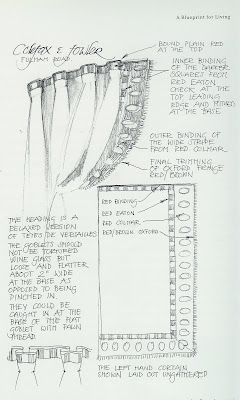 A Blueprint for Living
Colefax & Fowler
FULHAM ROAD.
BOUND PLAIN RED
AT THE TOP
INNER BINDING
OF THE DARKER
SQUARES FROM
RED EATON
CHECK AT THE
TOP, LEADING
EDGE AND
AT THE BASE
OUTER BINDING OF
THE WIDE STRIPE
FROM RED COLMAR
FINAL TRIMMING
OF OXFORD FRINGE
RED/BROWN
RED BINDING
RED EATON
RED COLMAR
RED/BROWN OXFORD
THE HEADING IS A
RELAXED VERSION
OF TETES DE VERSAILLES
THE GOBLETS SHOULD
NOT BE TORTURED
WINE GLASS BUT
LOOSE AND FLATTER
ABOUT 2" WIDE
AT THE BASE AS
OPPOSED TO BEING
PINCHED IN
THEY COULD BE
CAUGHT IN AT THE
BASE OF THE FLAT
GOBLET WITH FAWN
THREAD
THE LEFT HAND CURTAIN
SHOWN LAID OUT UNGATHERED